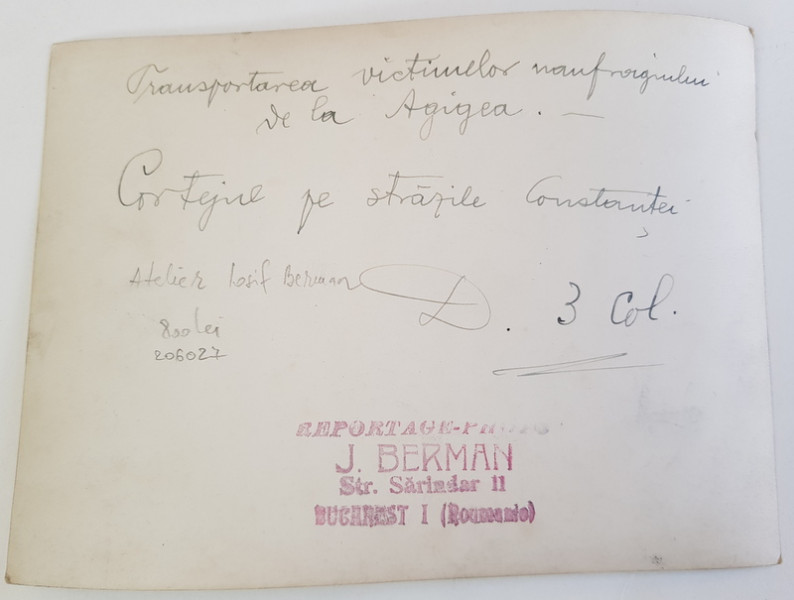 Transportarea victimelor naufragiului
de la Agigea. —
Cortejul pe străzile Constanței
Atelier Iosif Berman
D. 3 col.
800 lei
206027
REPORTAGE-PHOTO
J. BERMAN
Str. Sărindar 11
BUCAREST I (Roumanie)